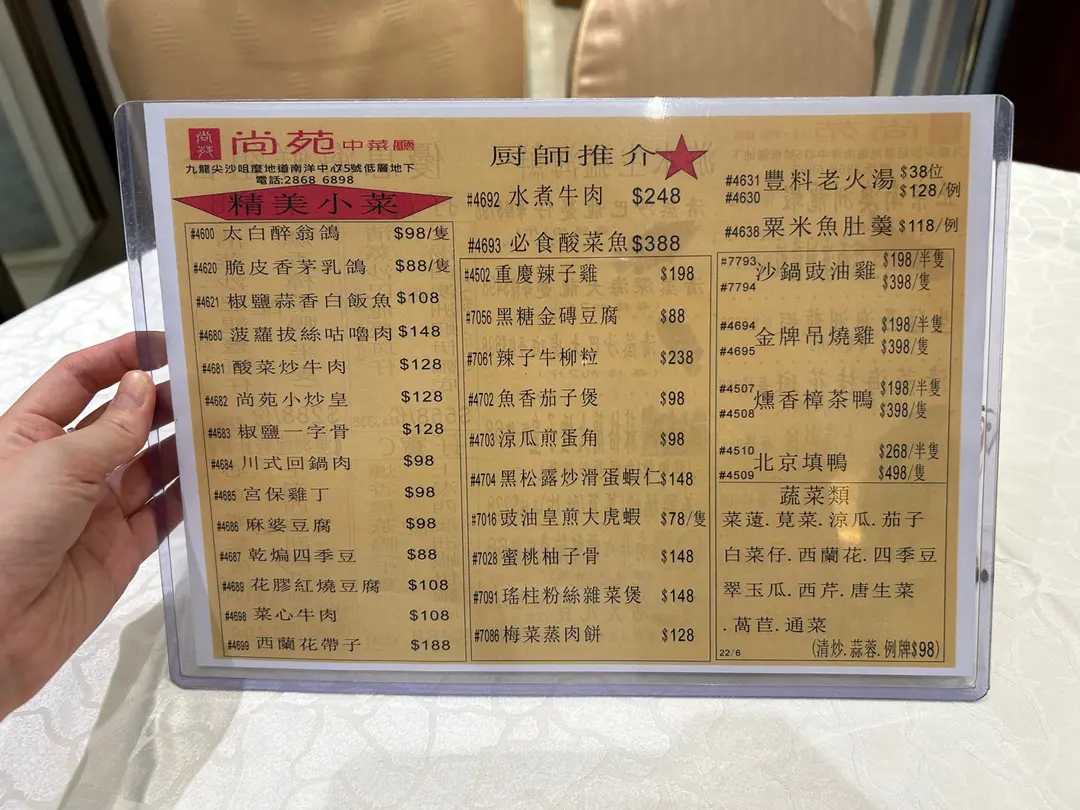 尚苑
尚苑中菜廳
九龍尖沙咀麼地道南洋中心75號低層地下
電話:2868 6898
精美小菜
#4600 太白醉翁鴿 $98/隻
#4620 脆皮香茅乳鴿 $88/隻
#4621 椒鹽蒜香白飯魚 $108
#4680 菠蘿拔絲咕嚕肉 $148
#4681 酸菜炒牛肉 $128
#4682 尚苑小炒皇 $128
#4683 椒鹽一字骨 $128
#4684 川式回鍋肉 $98
#4685 宮保雞丁 $98
#4686 麻婆豆腐 $98
#4687 乾煸四季豆 $88
#4689 花膠紅燒豆腐 $108
#4698 菜心牛肉 $108
#4699 西蘭花帶子 $188
厨師推介
#4692 水煮牛肉 $248
#4693 必食酸菜魚 $388
#4502 重慶辣子雞 $198
#7056 黑糖金磚豆腐 $88
#7061 辣子牛柳粒 $238
#4702 魚香茄子煲 $98
#4703 涼瓜煎蛋角 $98
#4704 黑松露炒滑蛋蝦仁 $148
#7016 豉油皇煎大虎蝦 $78/隻
#7028 蜜桃柚子骨 $148
#7091 瑤柱粉絲雜菜煲 $148
#7086 梅菜蒸肉餅 $128
#4631 #4630 豐料老火湯 $38位 $128/例
#4638 粟米魚肚羹 $118/例
#7793 #7794 沙鍋豉油雞 $198/半隻 $398/隻
#4694 #4695 金牌吊燒雞 $198/半隻 $398/隻
#4507 #4508 燻香樟茶鴨 $198/半隻 $398/隻
#4510 #4509 北京填鴨 $268/半隻 $498/隻
蔬菜類
菜薳.莧菜.涼瓜.茄子
白菜仔.西蘭花.四季豆
翠玉瓜.西芹.唐生菜
.萵苣.通菜
22/6 (清炒.蒜蓉.例牌$98)